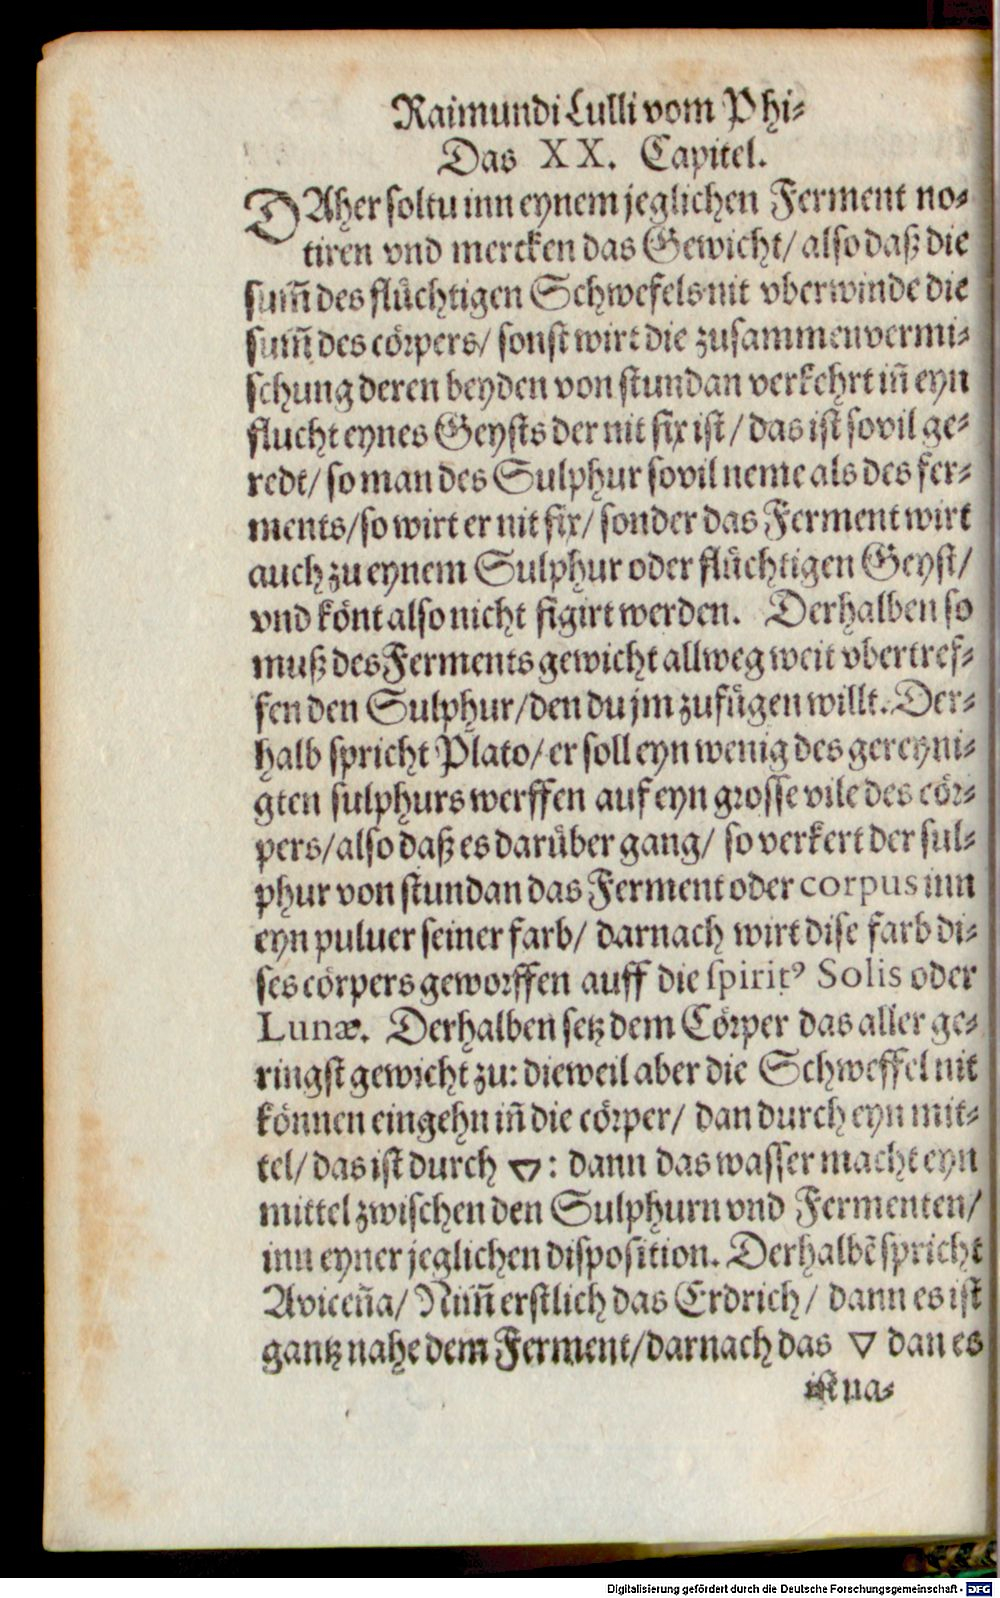 Raimundi Lulli vom Phi⸗
Das XX. Capitel.
DAher soltu inn eynem jeglichen Ferment no⸗
tiren vnd mercken das Gewicht/ also daß die
sum̃ des flüchtigen Schwefels nit vberwinde die
sum̃ des cörpers/ sonst wirt die zusammenvermi⸗
schung deren beyden von stundan verkehrt iñ eyn
flucht eynes Geysts der nit fix ist/ das ist sovil ge⸗
redt/ so man des Sulphur sovil neme als des fer⸗
ments/ so wirt er nit fix/ sonder das Ferment wirt
auch zu eynem Sulphur oder flüchtigen Geyst/
vnd könt also nicht figirt werden. Derhalben so
muß des Ferments gewicht allweg weit vbertref⸗
fen den Sulphur/ den du jm zufügen willt. Der⸗
halb spricht Plato/ er soll eyn wenig des gereyni⸗
gten sulphurs werffen auf eyn grosse vile des cör⸗
pers/ also daß es darüber gang/ so verkert der sul⸗
phur von stundan das Ferment oder corpus inn
eyn puluer seiner farb/ darnach wirt dise farb di⸗
ses cörpers geworffen auff die spiritꝰ Solis oder
Lunæ. Derhalben setz dem Cörper das aller ge⸗
ringst gewicht zu: dieweil aber die Schweffel nit
können eingehn iñ die cörper/ dan durch eyn mit⸗
tel/ das ist durch 🜄: dann das wasser macht eyn
mittel zwischen den Sulphurn vnd Fermenten/
inn eyner jeglichen disposition. Derhalbẽ spricht
Aviceña/ Nim̃ erstlich das Erdrich/ dann es ist
gantz nahe dem Ferment/ darnach das 🜄 dan es
ist na⸗
Digitalisierung gefördert durch die Deutsche Forschungsgemeinschaft - DFG